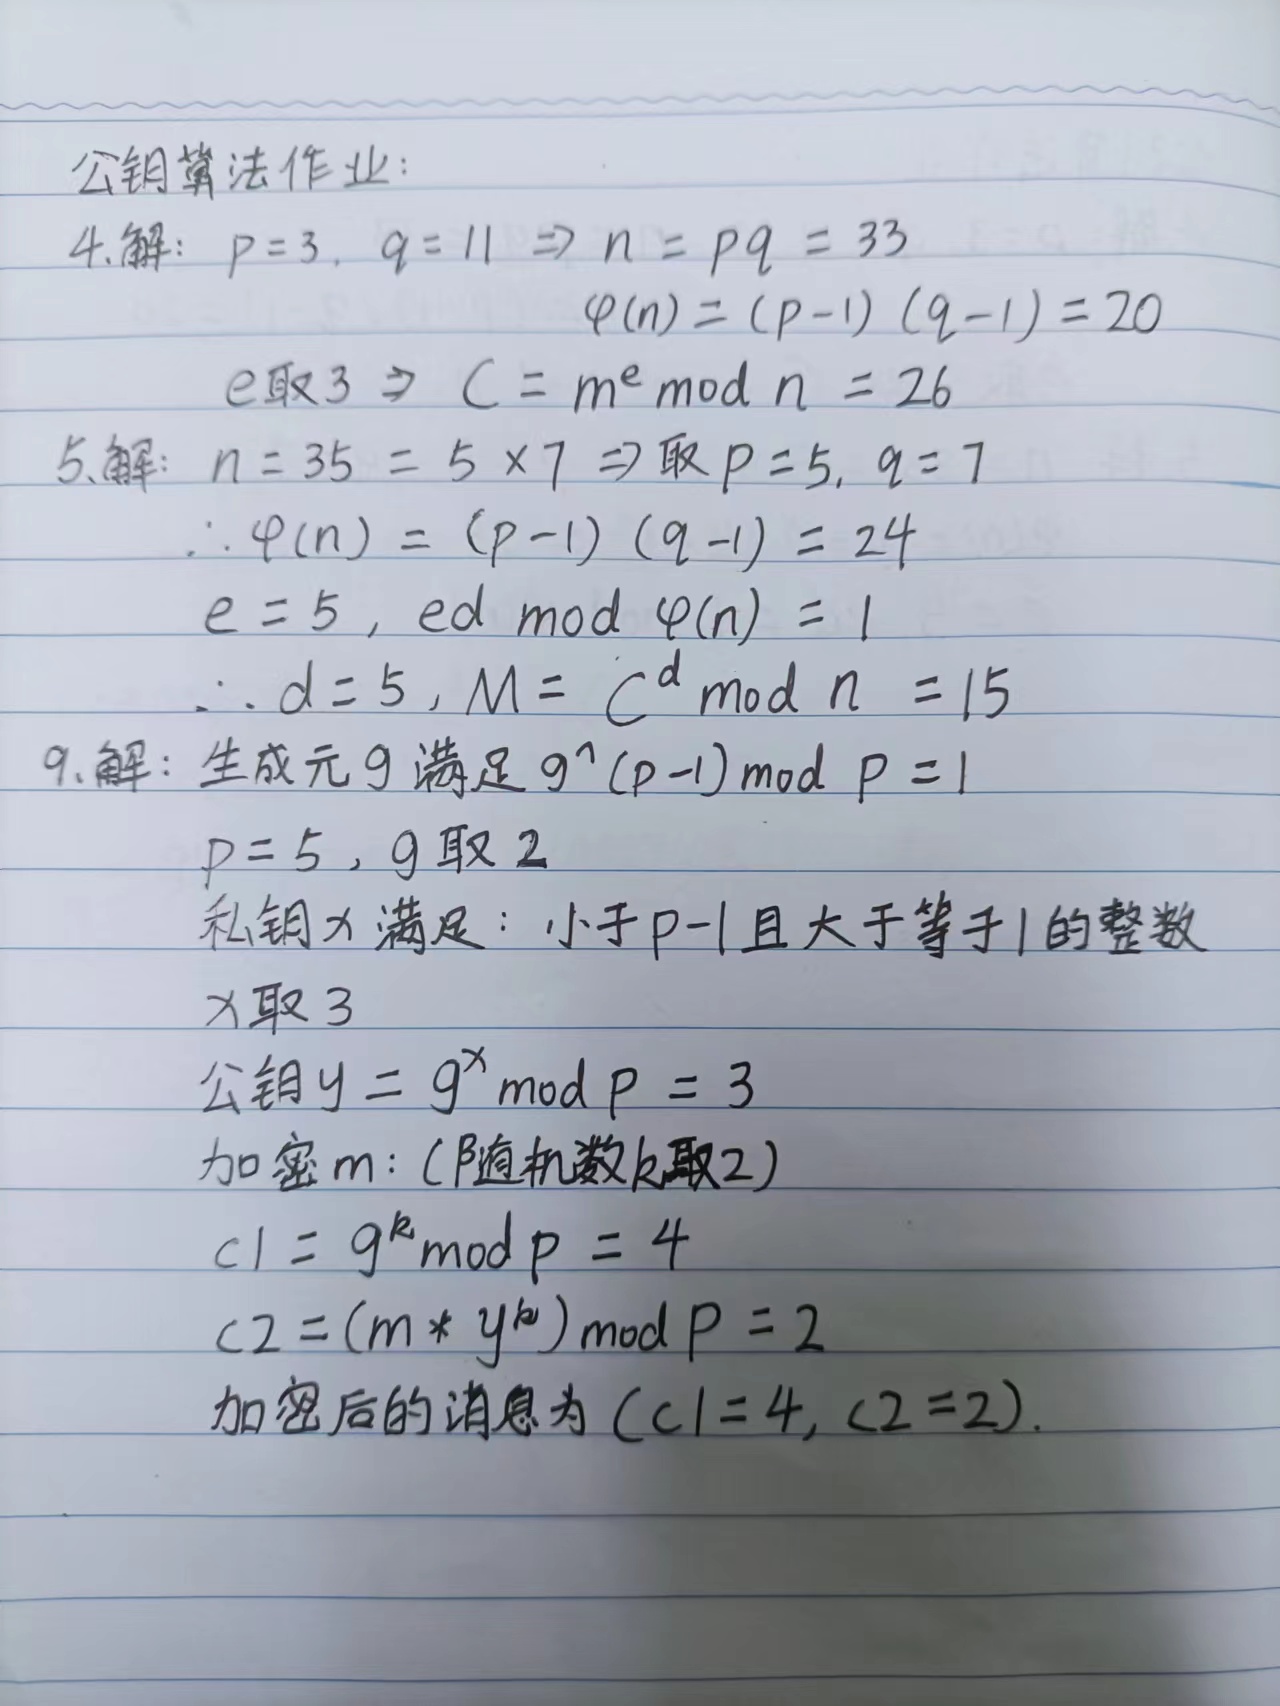 公钥算法作业:
4.解: p=3, q=11 ⇒ n = pq = 33
φ(n) = (p-1) (q-1) = 20
e取3 ⇒ C = m^e mod n = 26
5.解: n=35 = 5×7 ⇒ 取p=5, q=7
∴ φ(n) = (p-1) (q-1) = 24
e = 5, ed mod φ(n) = 1
∴ d = 5, M = C^d mod n = 15
9.解: 生成元g满足g^(p-1) mod p = 1
p = 5, g取2
私钥x满足: 小于p-1且大于等于1的整数
x取3
公钥y = g^x mod p = 3
加密m: (随机数k取2)
c1 = g^k mod p = 4
c2 = (m * y^k) mod p = 2
加密后的消息为 (c1=4, c2=2).